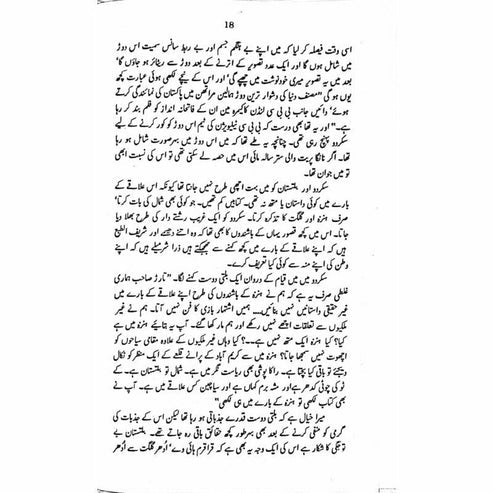 18
اسی وقت فیصلہ کر لیا کہ میں اپنے بے ہنگم جسم اور بے ربط سانس سمیت اس دوڑ
میں شامل ہوں گا اور ایک عدد تصویر کے اترنے کے بعد دوڑ سے ریٹائر ہو جاؤں گا
بعد میں یہ تصویر میری خودنوشت میں چھپے گی' اور اس کے نیچے لکھی ہوئی عبارت کچھ
یوں ہو گی "مصنف دنیا کی دشوار ترین دوڑ ہمالین مراتھن میں پاکستان کی نمائندگی کرتے
ہوئے' دائیں جانب بی بی سی لنڈن کا کیمرہ مین ان کے فاتحانہ انداز کو فلم بند کر رہا
ہے۔" اور یہ تھا بھی درست کہ بی بی سی ٹیلیویژن کی ٹیم اس دوڑ کو کور کرنے کے لیے
سکردو پہنچ رہی تھی۔ چنانچہ یہ طے تھا کہ میں اس دوڑ میں بہرصورت شامل ہو رہا
تھا۔ اگر نانگا پربت والی ستر سالہ مائی اس میں حصہ لے سکتی تھی تو اس کی نسبت ابھی
تو میں جوان تھا۔
سکردو اور بلتستان کو میں بہت اچھی طرح نہیں جانتا تھا کیونکہ اس علاقے کے
بارے میں کوئی داستان یا متھ نہ تھی۔ کتابیں کم تھیں۔ جو کوئی بھی شمال کی بات کرتا'
صرف ہنزہ اور گلگت کا تذکرہ کرتا۔ سکردو کو ایک غریب رشتے دار کی طرح بھلا دیا
جاتا۔ اس میں کچھ قصور یہاں کے باشندوں کا بھی تھا کہ وہ اتنے دھیمے اور شریف الطبع
ہیں کہ اپنے علاقے کے بارے میں کچھ کہنے سے جھجکتے ہیں ذرا شرمیلے ہیں کہ اپنے
وطن کی اپنے منہ سے کوئی کیا تعریف کرے۔
سکردو میں میں قیام کے دوران ایک بلتی دوست کہنے لگا۔ "تارڑ صاحب ہماری
غلطی صرف یہ ہے کہ ہم نے ہنزہ کے باشندوں کی طرح اپنے علاقے کے بارے میں
غیر حقیقی داستانیں نہیں بنائیں۔۔۔ ہمیں اشتہار بازی کا فن نہیں آتا۔ ہم نے غیر
ملکیوں سے تعلقات اچھے نہیں رکھے اور ہم مار کھا گئے۔ آپ یہ بتائیے ہنزہ میں ہے
کیا؟ کیا ہنزہ ایک متھ نہیں ہے۔۔؟ کیا وہاں غیر ملکیوں کے علاوہ مقامی سیاحوں کو
اچھوت نہیں سمجھا جاتا؟ ہنزہ میں سے کریم آباد کے پرانے قلعے کے ایک منظر کو نکال
دیجئے تو باقی کیا بچتا ہے۔ راکا پوشی بھی ریاست نگر میں ہے۔ شمال تو بلتستان ہے۔ کے
ٹو کی چوٹی کدھر ہے اور مشہ برم کہاں ہے اور سیاچین کس علاقے میں ہے۔ آپ نے
بھی کتاب لکھی تو ہنزہ کے بارے میں ہی لکھی"
میرا خیال ہے کہ بلتی دوست قدرے جذباتی ہو رہا تھا لیکن اس کے جذبات کی
گرمی کو منفی کرنے کے بعد بھی بہرطور کچھ حقائق باقی رہ جاتے تھے۔ بلتستان بے
توجہی کا شکار ہے اس کی ایک وجہ یہ بھی ہے کہ قراقرم ہائی وے' اُدھر گلگت سے اُدھر